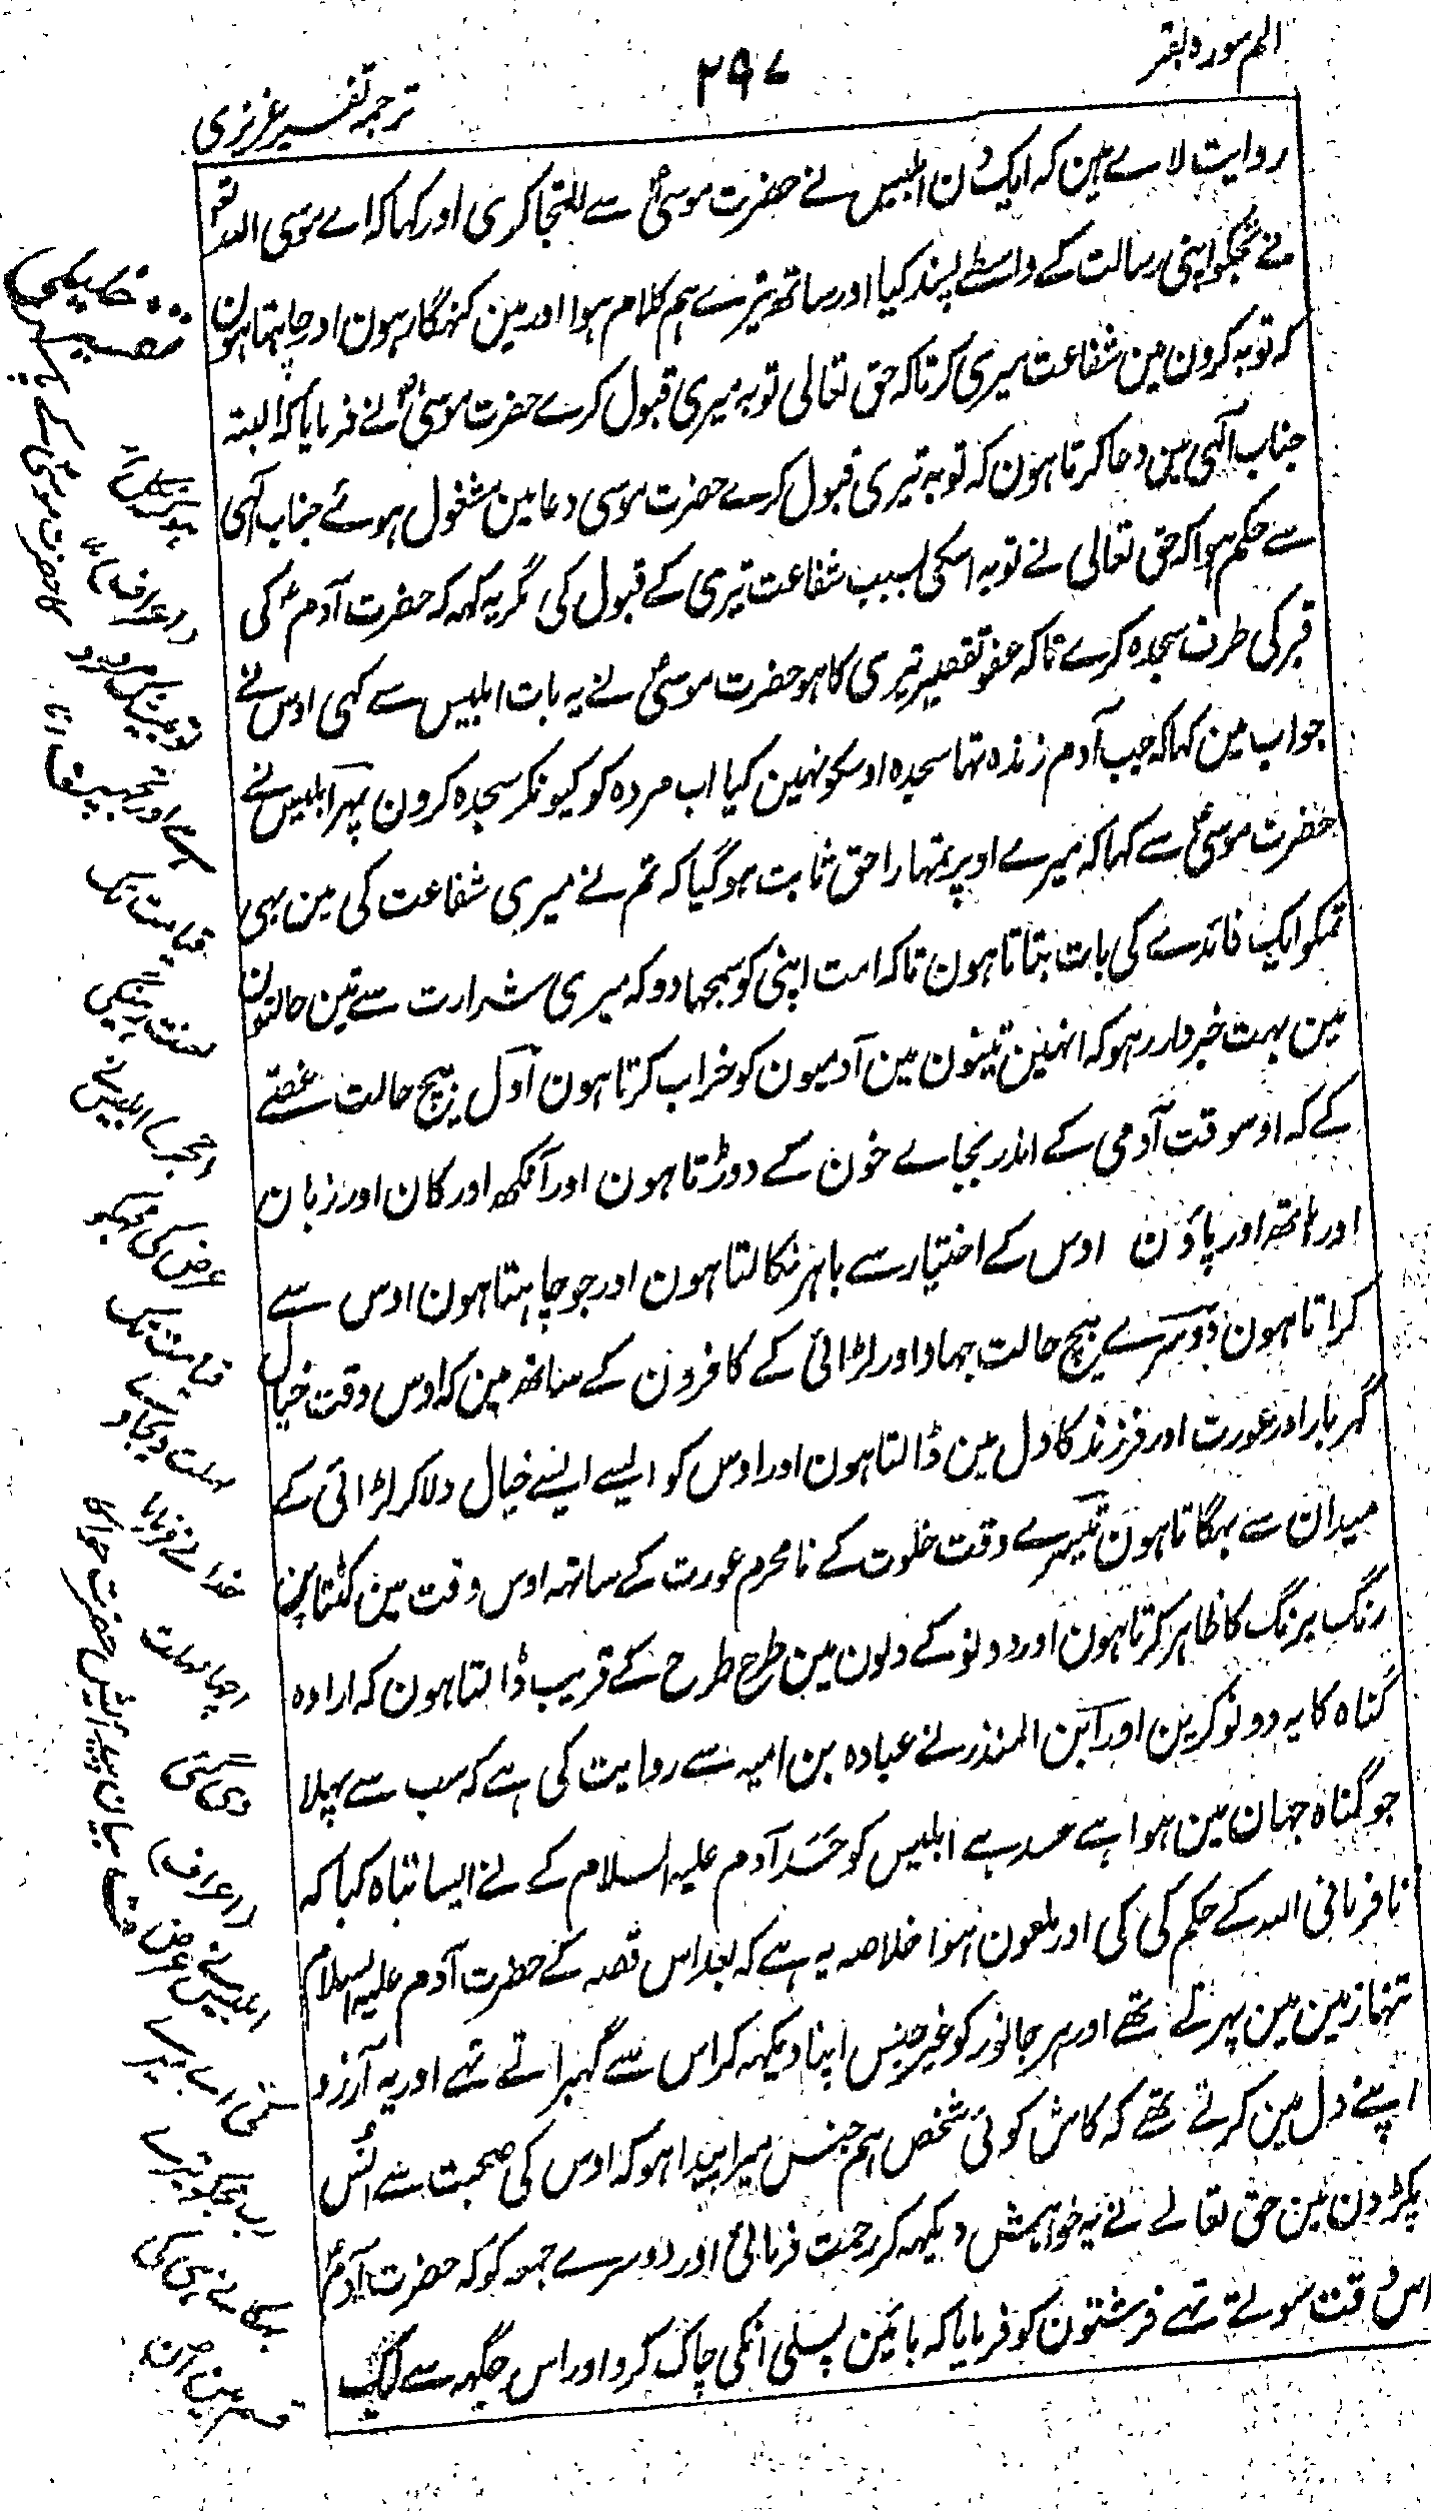 الم سورہ بقر
۲۹۷
ترجمہ تفسیر عزیزی
روایت لاے ہین کہ ایک دن ابلیس نے حضرت موسیٰؑ سے التجا کری اور کہا کہ اے موسی اللہ تعہ
نے تجکو اپنی رسالت کے واسطے پسند کیا اور ساتھ تیرے ہم کلام ہوا اور مین گنہگار ہون اور چاہتا ہون
کہ توبہ کرون مین شفاعت میری کر تاکہ حق تعالی توبہ میری قبول کرے حضرت موسیٰؑ نے فرمایا کہ البتہ
جناب آلہی مین دعا کرتا ہون کہ توبہ تیری قبول کرے حضرت موسی دعا مین مشغول ہوئے جناب آلہی
سے حکم ہوا کہ حق تعالی نے توبہ اسکی بسبب شفاعت تیری کے قبول کی مگر یہ کہہ کہ حضرت آدمؑ کی
قبر کی طرف سجدہ کرے تاکہ عفو تقصیر تیری کا ہو حضرت موسیٰؑ نے یہ بات ابلیس سے کہی اوس نے
جواب مین کہا کہ جب آدم زندہ تہا سجدہ اوسکو نہین کیا اب مردہ کو کیونکر سجدہ کرون پہر ابلیس نے
حضرت موسیٰؑ سے کہا کہ میرے اوپر تمہارا حق ثابت ہو گیا کہ تم نے میری شفاعت کی مین بہی
تمکو ایک فائدے کی بات بتاتا ہون تاکہ امت اپنی کو سمجہا دو کہ میری شرارت سے تین حالتون
مین بہت خبردار رہو کہ انہین تینون مین آدمیون کو خراب کرتا ہون اوّل بیچ حالت غصّے
کے کہ اوسوقت آدمی کے اندر بجاے خون کے دوڑتا ہون اور آنکھ اور کان اور زبان
اور ہاتھ اور پاؤن اوس کے اختیار سے باہر نکالتا ہون اور جو چاہتا ہون اوس سے
کراتا ہون دوسرے بیچ حالت جہاد اور لڑائی کے کافرون کے ساتھ مین کہ اوس وقت خیال
گہر بار اور عورت اور فرزند کا دل مین ڈالتا ہون اور اوس کو ایسے ایسے خیال دلا کر لڑائی کے
میدان سے بہگاتا ہون تیسرے وقت خلوت کے نامحرم عورت کے ساتہہ اوس وقت مین کٹناپن
رنگ برنگ کا ظاہر کرتا ہون اور دونو کے دلون مین طرح طرح کے فریب ڈالتا ہون کہ ارادہ
گناہ کا یہ دونو کرین اور ابن المنذر نے عبادہ بن امیہ سے روایت کی ہے کہ سب سے پہلا
جو گناہ جہان مین ہوا ہے حسد ہے ابلیس کو حَسَد آدم علیہ السلام کے نے ایسا تباہ کیا کہ
نافرمانی اللہ کے حکم کی کی اور ملعون ہوا خلاصہ یہ ہے کہ بعد اس قصہ کے حضرت آدم علیہ السلام
تنہا زمین مین پہرتے تھے اور ہر جانور کو غیر جنس اپنا دیکہہ کر اس سے گہبراتے تہے اور یہ آرزو
اپنے دل مین کرتے تھے کہ کاش کوئی شخص ہم جنس میرا پیدا ہو کہ اوس کی صحبت سے اُنس
پکڑون مین حق تعالے نے یہ خواہش دیکہہ کر رحمت فرمائی اور دوسرے جمعہ کو کہ حضرت آدمؑ
اس وقت سوتے تہے فرشتون کو فرمایا کہ بائین پسلی انکی چاک کرو اور اس جگہہ سے ایک
کا حضرت موسیٰؑ کے
(اعراف)
قیامت تک
لعنت
ابلیس نے
عرض کی مجہکو
قیامت تک
خدا نے فرمایا
اچہا مہلت
دی گئی
(اعراف)
بیان پیدائش حضرت حوا کا
ابلیس نے عرض